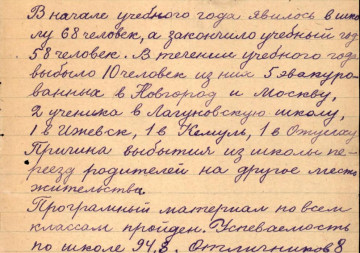 В начале учебного года явилось в шко-
лу 68 человек, а закончило учебный год
58 человек. В течении учебного года
выбыло 10 человек из них 5 эвакуиро-
ванных в Новгород и Москву,
2 ученика в Лагуновскую школу,
1 в Ижевск, 1 в Кемуль, 1 в
Причина выбытия из школы пе-
реезд родителей на другое место
жительства.
Програмный материал по всем
классам пройден. Успеваемость
по школе 94,8. Отличников 8